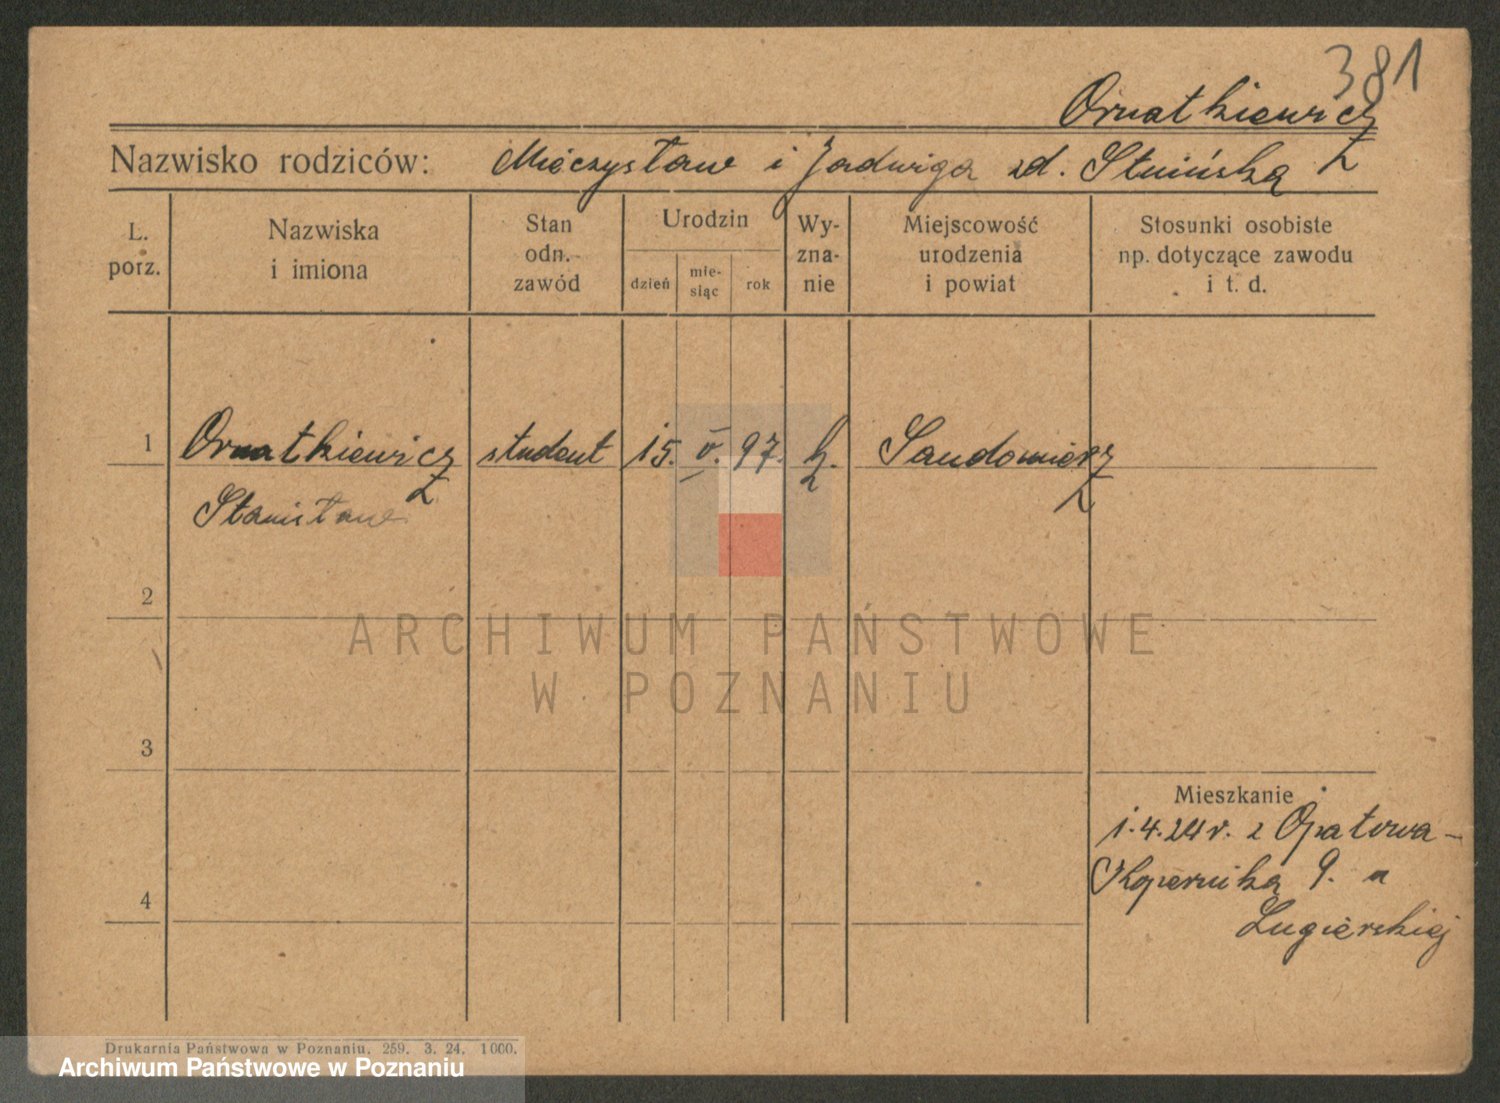 381
Ornatkiewicz
Nazwisko rodziców: Mieczysław i Jadwiga zd.
L. porz.
Nazwiska i imiona
Stan odn. zawód
Urodzin
dzień
mie-siąc
rok
Wy-zna-nie
Miejscowość urodzenia i powiat
Stosunki osobiste np. dotyczące zawodu i t. d.
1 Ornatkiewicz student 15. V. 97. k. Sandomierz
Stanisław
2
ARCHIWUM PAŃSTWOWE
W POZNANIU
3
Mieszkanie
1.4.24 r. z Opatowa -
Kopernika 9. u
4
Drukarnia Państwowa w Poznaniu. 259. 3. 24. 1000.
Archiwum Państwowe w Poznaniu